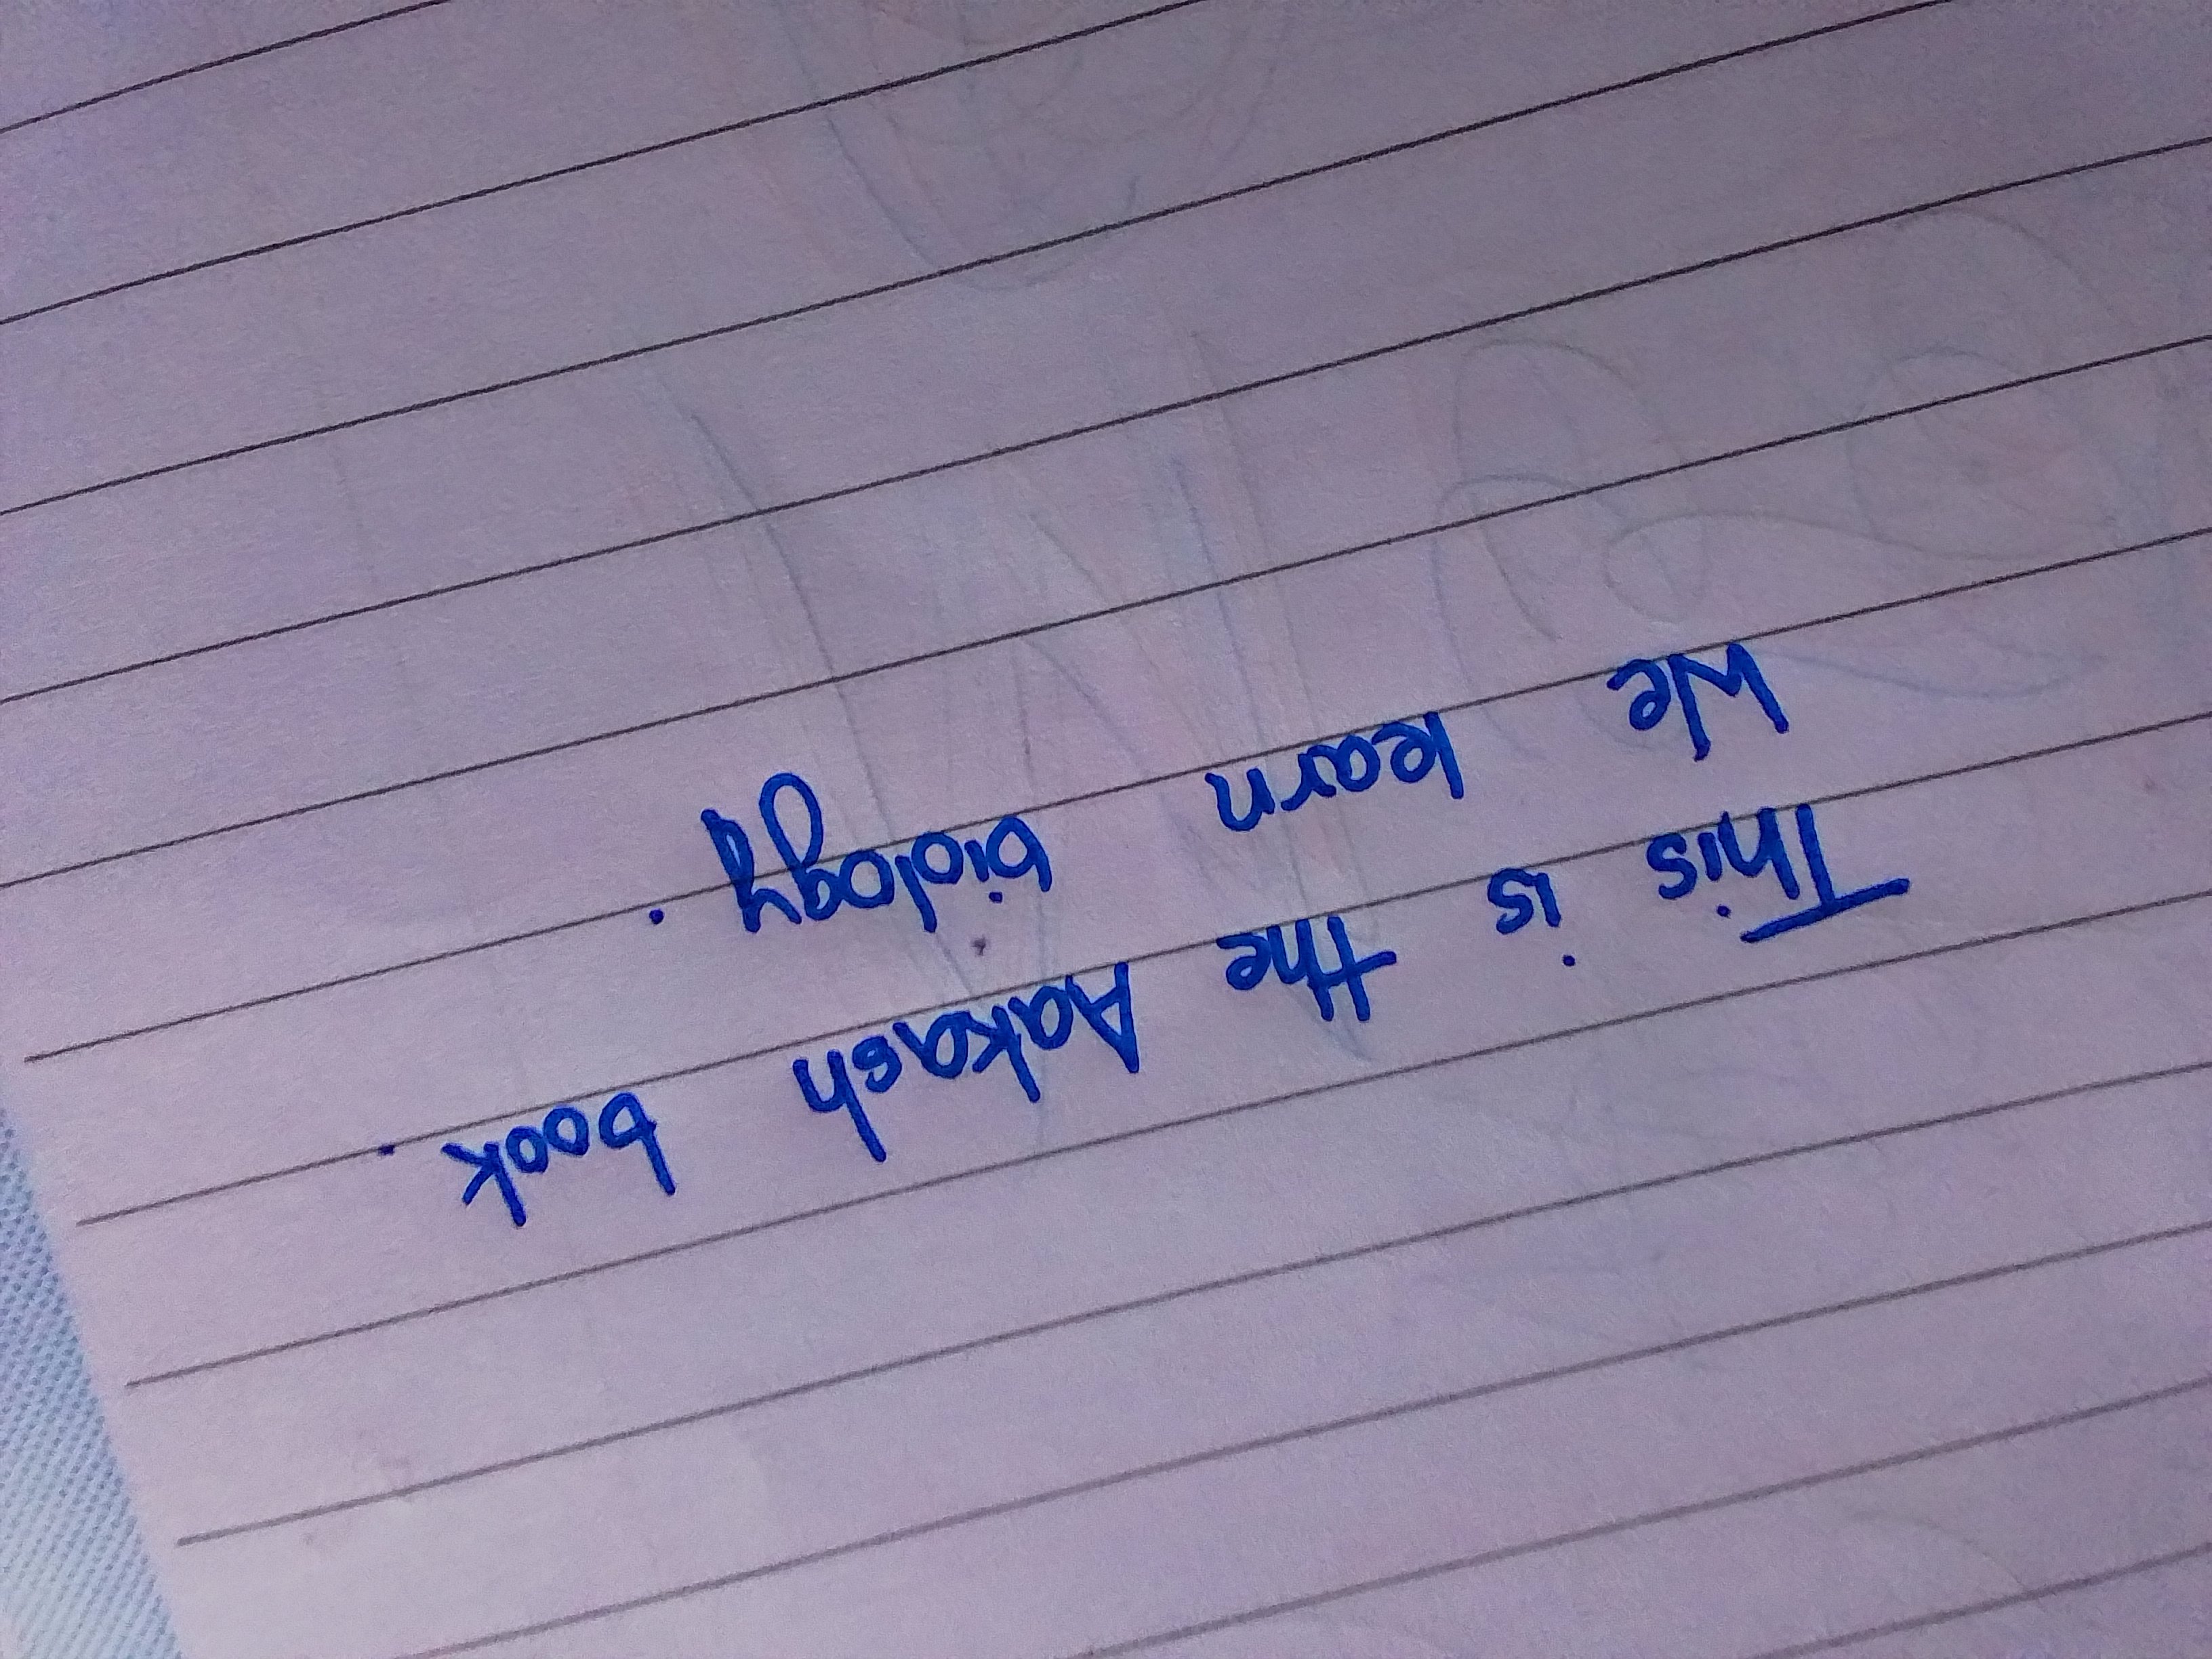 This is the Aakash book.
We learn biology.